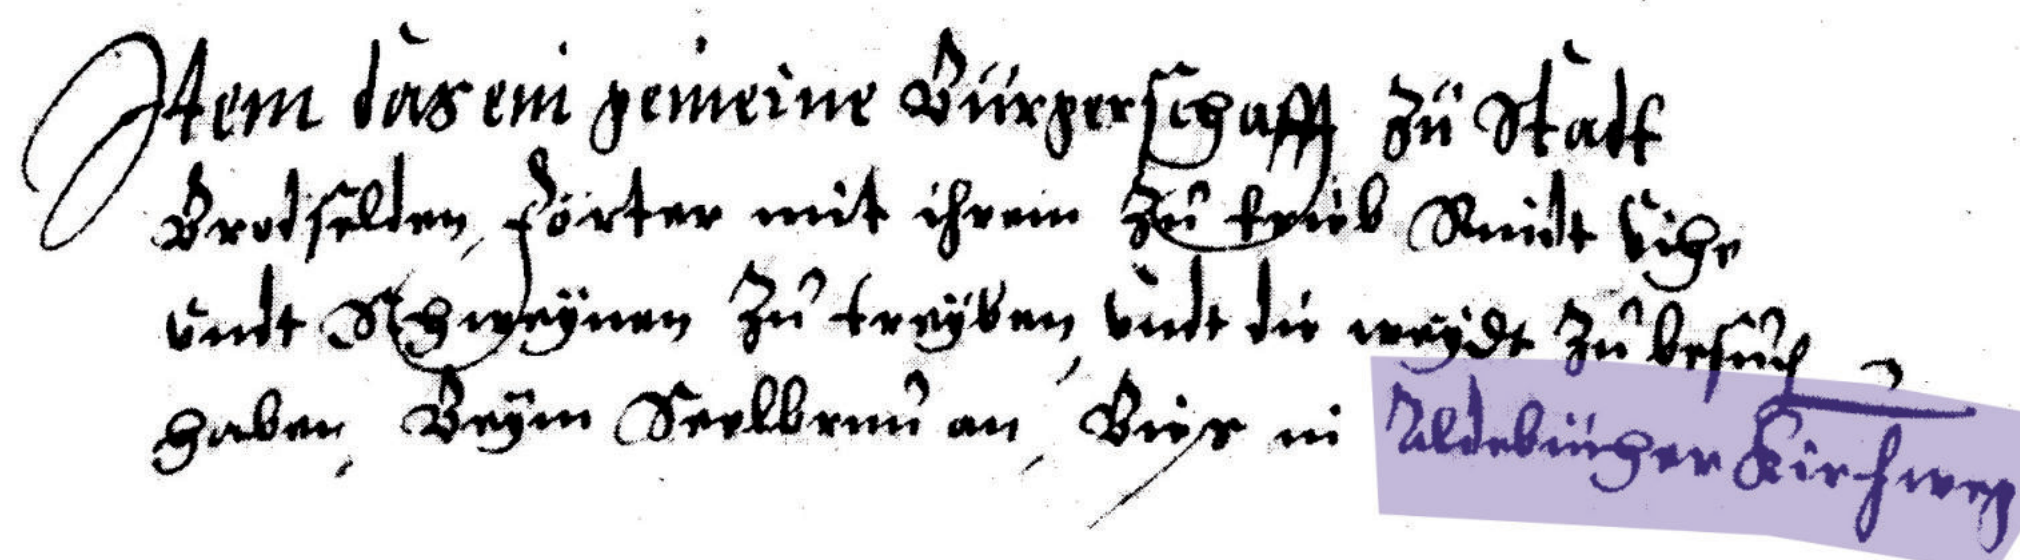 Item das ein gemeine Bürgerschafft zu Statt
Brodselten, förter mit ihrem zu trieb Rindt Vihe
vndt Schweÿnen zu treÿben, vndt die weÿdt zu besuch
haben, Beÿm Seelbrun an, Bies in Altebücher Kirchweg